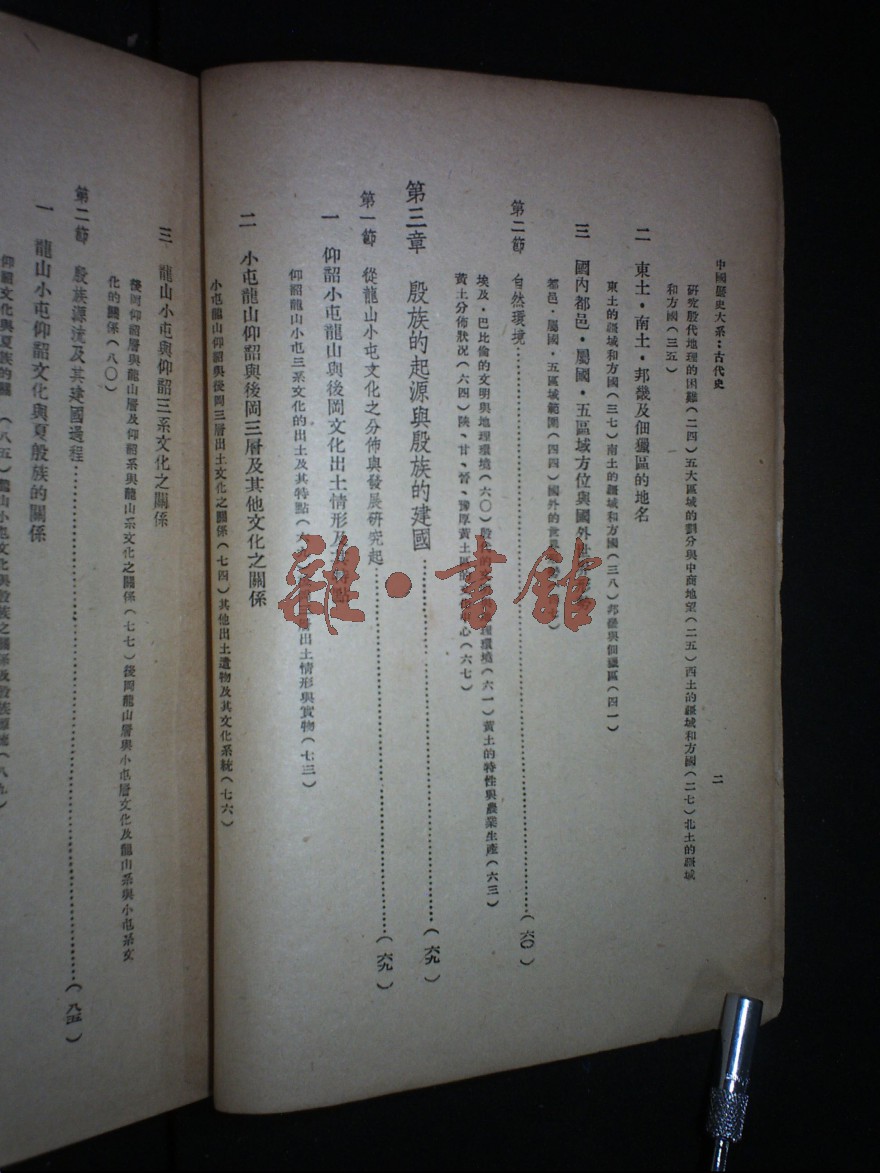 中國歷史大系：古代史
二
研究殷代地理的困難（二四）五大區域的劃分與中商地望（二五）西土的疆域和方國（二七）北土的疆域
和方國（三五）
二 東土・南土・邦畿及佃獵區的地名
東土的疆域和方國（三七）南土的疆域和方國（三八）邦畿與佃獵區（四一）
三 國內都邑・屬國・五區域方位與國外
都邑・屬國・五區域範圍（四四）國外的世
第二節 自然環境（六〇）
埃及・巴比倫的文明與地理環境（六〇）殷 環境（六一）黃土的特性與農業生產（六三）
黃土分佈狀況（六四）陝、甘、晉、豫厚黃土區的文化中心（六七）
第三章 殷族的起源與殷族的建國（六九）
第一節 從龍山小屯文化之分佈與發展研究起（六九）
一 仰韶小屯龍山與後岡文化出土情形及 點
仰韶龍山小屯三系文化的出土及其特點 層出土情形與實物（七三）
二 小屯龍山仰韶與後岡三層及其他文化之關係
小屯龍山仰韶與後岡三層出土文化之關係（七四）其他出土遺物及其文化系統（七六）
三 龍山小屯與仰韶三系文化之關係
後岡仰韶層與龍山層及仰韶系與龍山系文化之關係（七七）後岡龍山層與小屯層文化及龍山系與小屯系文
化的關係（八〇）
第二節 殷族源流及其建國過程（八五）
一 龍山小屯仰韶文化與夏殷族的關係
仰韶文化與夏族的關 （八五）龍山小屯文化與殷族之關係及殷族源流（八九）
雜・書館